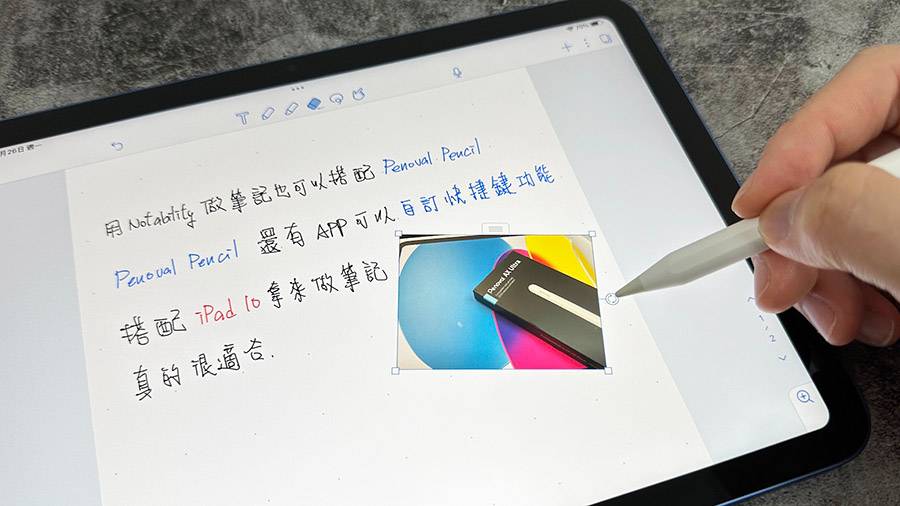 月26日 週一
79%
用 Notability 做筆記也可以搭配 Penoval Pencil
Penoval Pencil 還有 APP 可以自訂快捷鍵功能
搭配 iPad 10 拿來做筆記
真的很適合.
Penoval AX Ultra
1
2